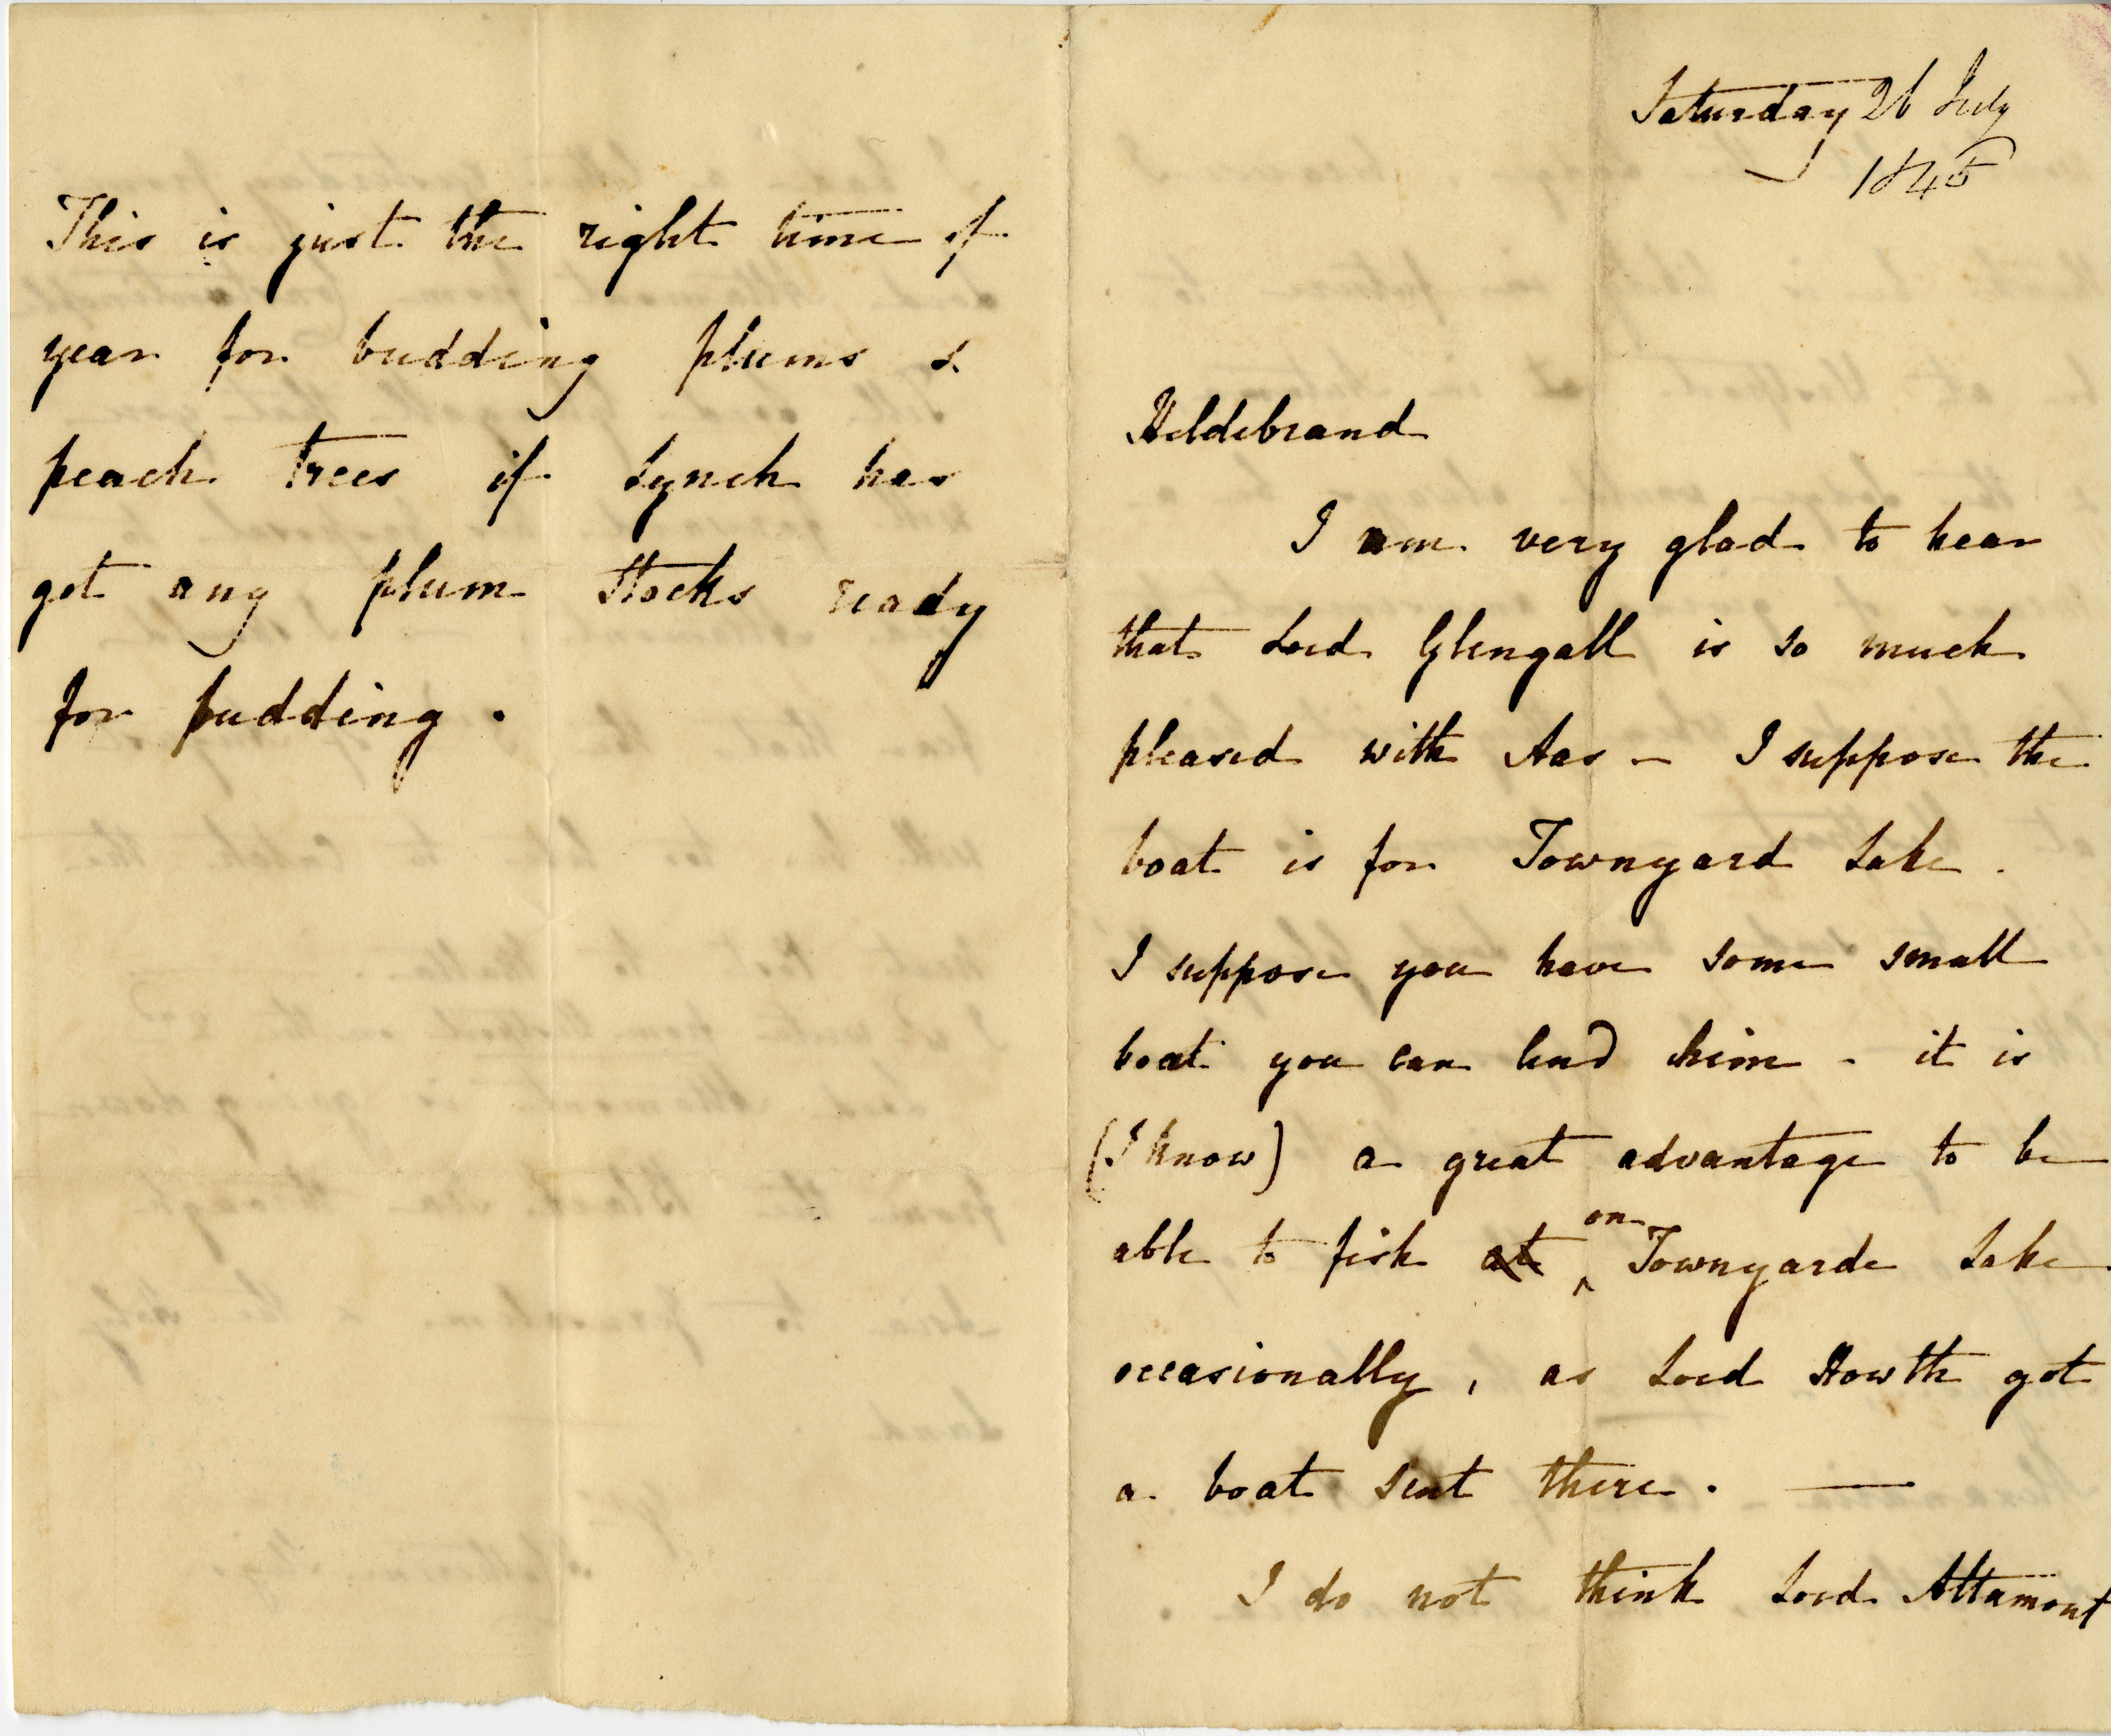 Saturday 26 July
1845
Hildebrand
I am very glad to hear
that Lord Glengall is so much
pleased with Aas – I suppose the
boat is for Townyard Lake.
I suppose you have some small
boat you can lend him – it is
(I know) a great advantage to be
able to fish at on Townyarde Lake
occasionally, as Lord Howth got
a boat sent there. —
I do not think Lord Altamont
This is just the right time of
year for budding plums &
peach trees if Lynch has
got any plum Stocks ready
for budding.